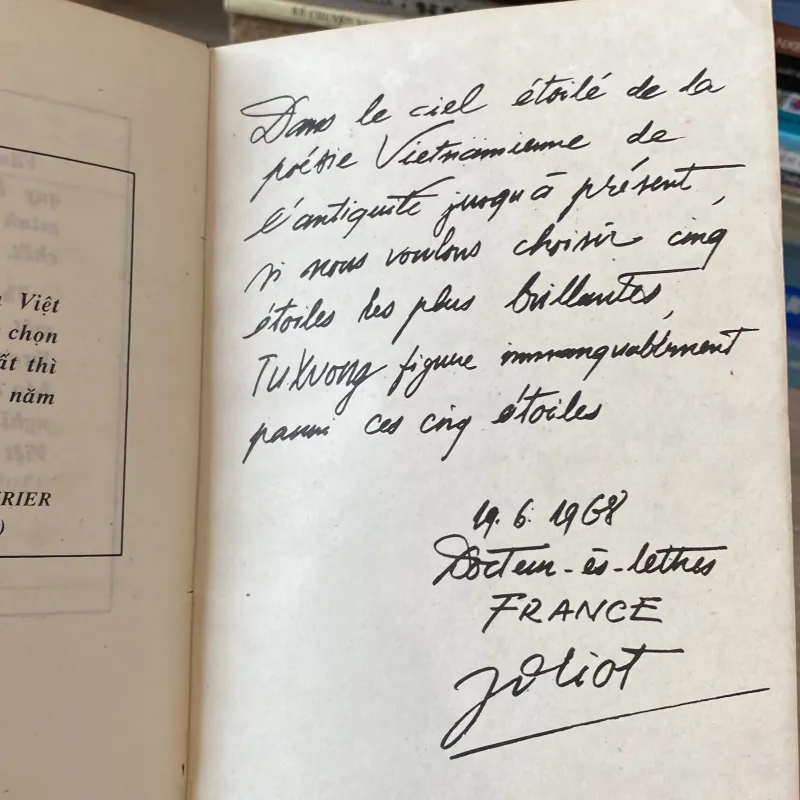 LỀ CHUYỆN
Việt
chọn
ất thì
năm
RIER
)
Dans le ciel étoilé de la
poésie Vietnamienne de
l'antiquité jusqu'à présent,
si nous voulons choisir cinq
étoiles les plus brillantes,
TuXuong figure immanquablement
parmi ces cinq étoiles
19.6.1968
Docteur-ès-lettres
FRANCE
Joliot